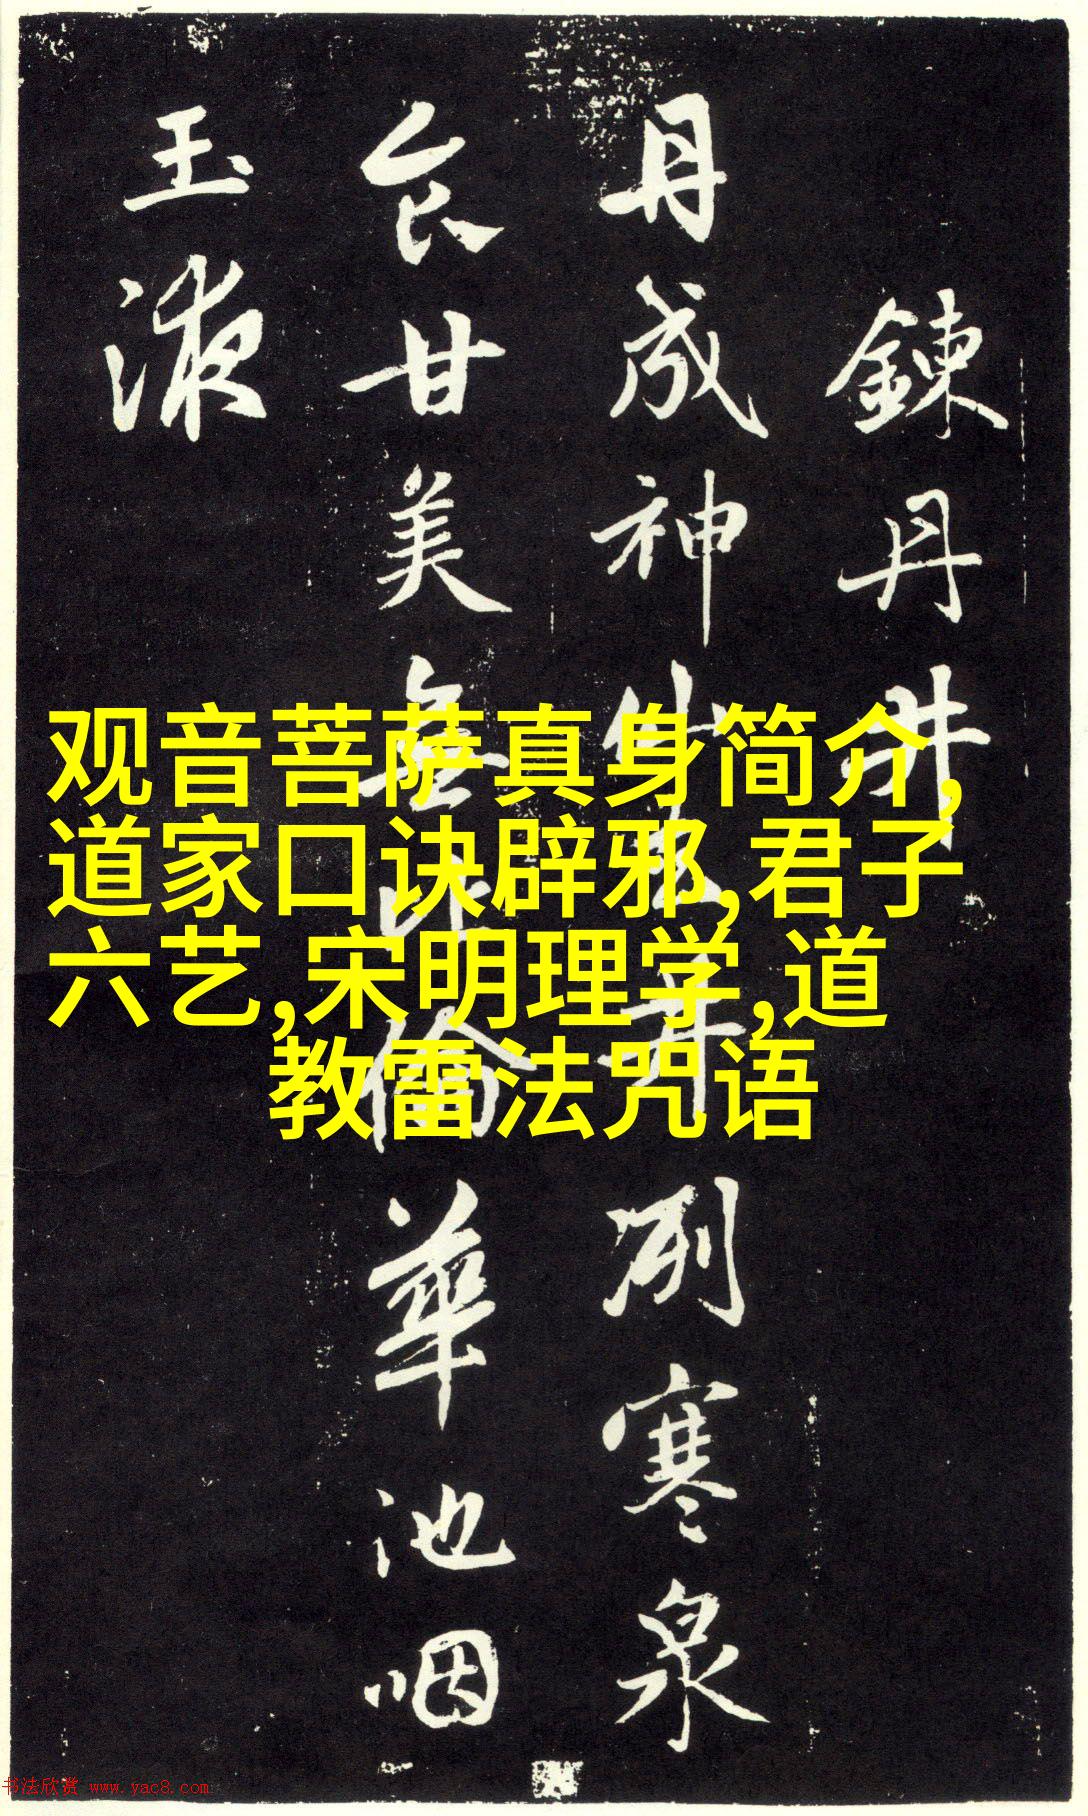 鍊丹井
丹成神仙去井冽寒泉
食甘美無比倫華池咽
玉液
观音菩萨真身简介,
道家口诀辟邪,君子
六艺,宋明理学,道
教雷法咒语
书法欣赏 www.yac8.com